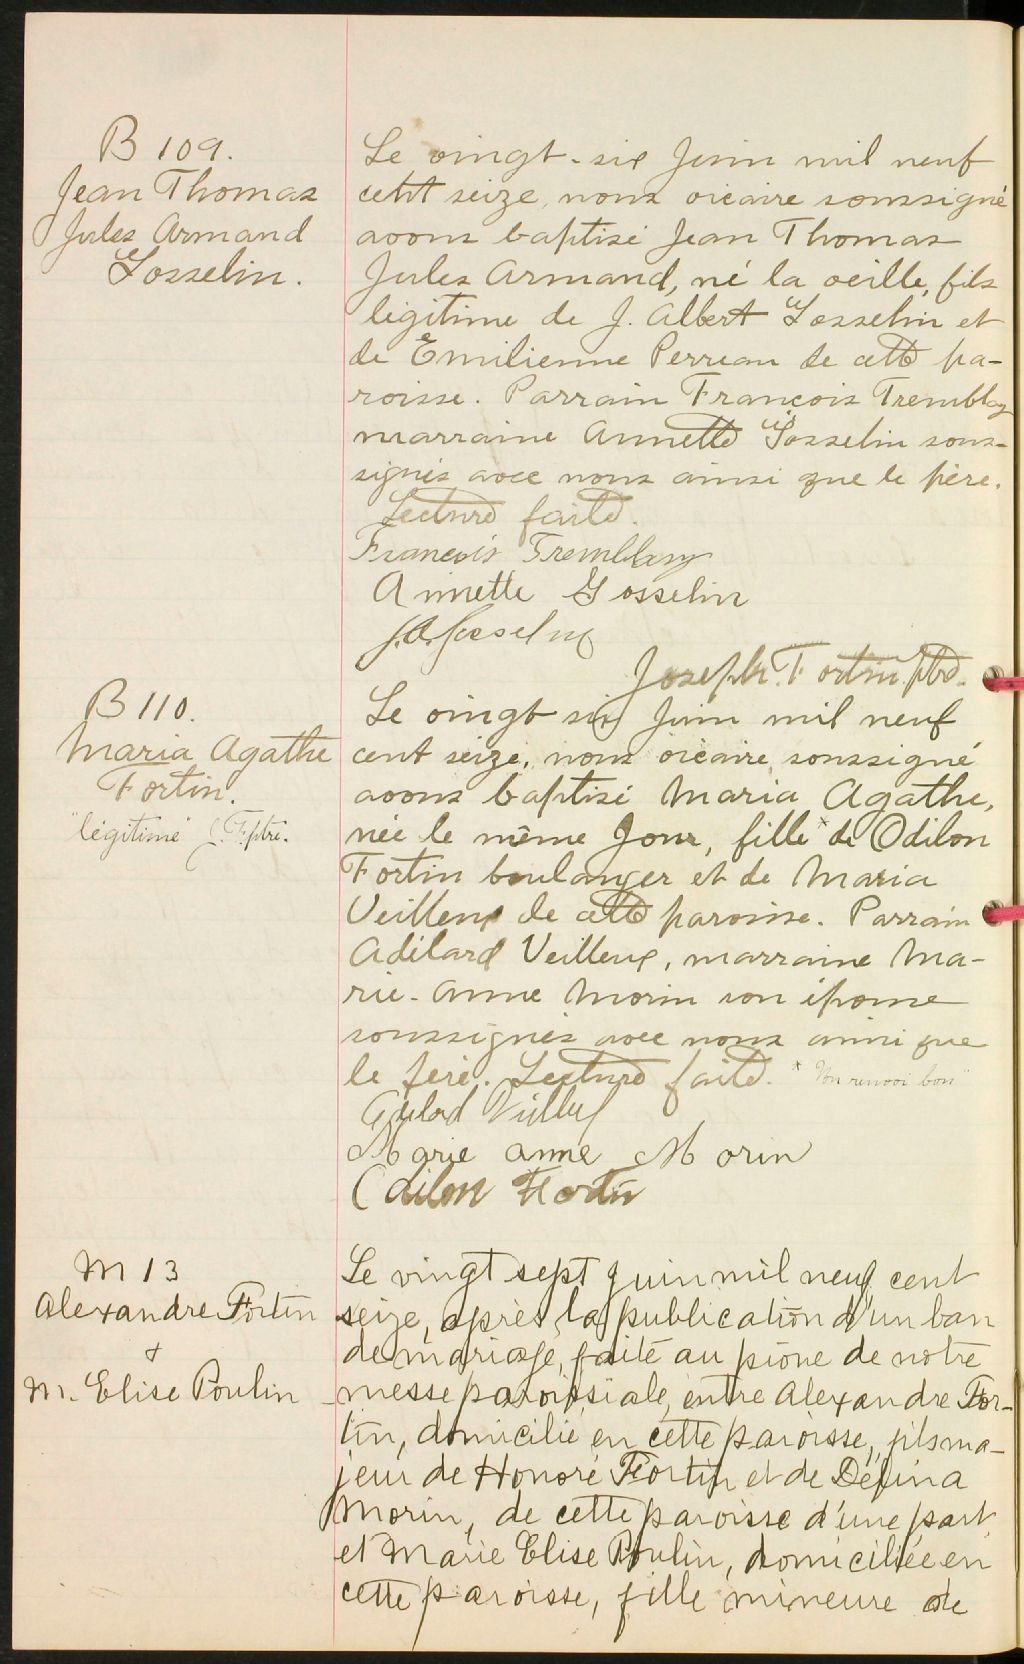 B 109.
Jean Thomas
Jules Armand
Gosselin.
Le vingt-six Juin mil neuf
cent seize, nous vicaire soussigné
avons baptisé Jean Thomas
Jules Armand, né la veille, fils
légitime de J. Albert Gosselin et
de Emilienne Perreau de cette pa-
roisse. Parrain François Tremblay
marraine Annette Gosselin sous-
signés avec nous ainsi que le père.
Lecture faite.
François Tremblay
Annette Gosselin
J.A. Gosselin
Joseph. Fortin ptre.
B 110.
Maria Agathe
Fortin.
"légitime" J. F. ptre.
Le vingt six Juin mil neuf
cent seize, nous vicaire soussigné
avons baptisé Maria Agathe,
née le même Jour, fille * de Odilon
Fortin boulanger et de Maria
Veilleux de cette paroisse. Parrain
Adélard Veilleux, marraine Ma-
rie-Anne Morin son épouse
soussignés avec nous ainsi que
le père. Lecture faite. * "Un renvoi bon"
Marie Anne Morin
Odilon Fortin
M 13
Alexandre Fortin
&
M. Elise Poulin
Le vingt sept juin mil neuf cent
seize, après la publication d'un ban
de mariage, faite au prône de notre
messe paroissiale, entre Alexandre For-
tin, domicilié en cette paroisse, fils ma-
jeur de Honoré Fortin et de Défina
Morin, de cette paroisse d'une part
et Marie Elise Poulin, domiciliée en
cette paroisse, fille mineure de